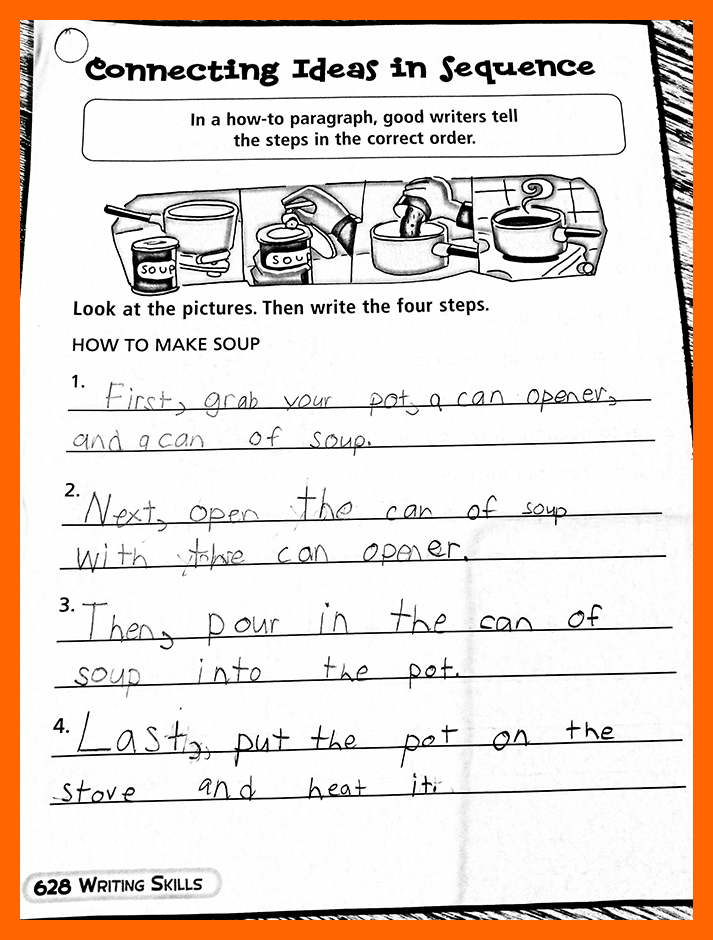 Connecting Ideas in Sequence
In a how-to paragraph, good writers tell
the steps in the correct order.
SOUP
SOU
Look at the pictures. Then write the four steps.
HOW TO MAKE SOUP
1. First, grab your pot, a can opener,
and a can of soup.
2. Next, open the can of soup
with the can opener.
3. Then, pour in the can of
soup into the pot.
4. Last, put the pot on the
stove and heat it.
628 WRITING SKILLS